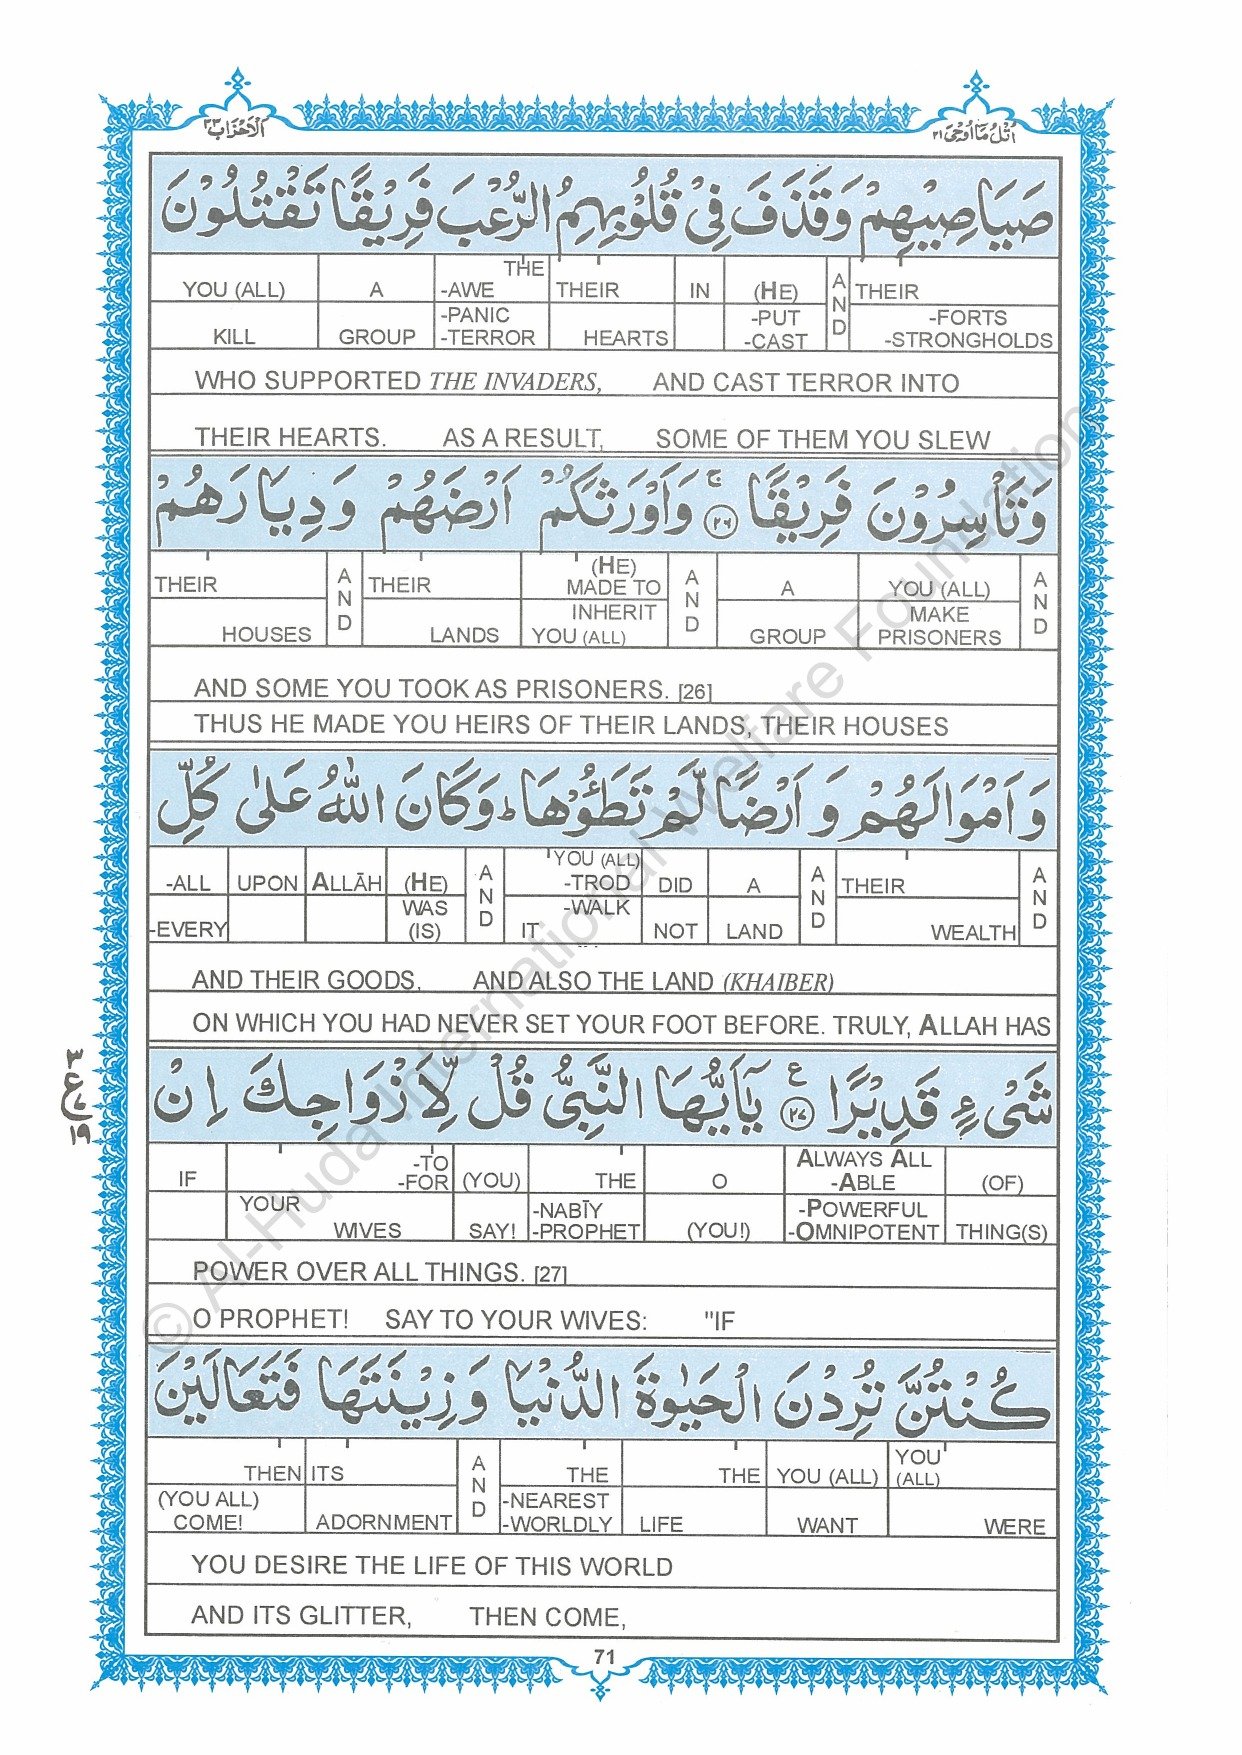 اُتْلُ مَا اُوْحِیَ ٢١
اَلْاَحْزَاب ٣٣
صَيَاصِيْهِمْ وَقَذَفَ فِىْ قُلُوْبِهِمُ الرُّعْبَ فَرِيْقًا تَقْتُلُوْنَ
YOU (ALL) A THE -AWE THEIR IN (HE) AND THEIR
KILL GROUP -PANIC -TERROR HEARTS -PUT -CAST -FORTS -STRONGHOLDS
WHO SUPPORTED THE INVADERS, AND CAST TERROR INTO
THEIR HEARTS. AS A RESULT, SOME OF THEM YOU SLEW
وَتَاْسِرُوْنَ فَرِيْقًا ۚ ٢٦ وَاَوْرَثَكُمْ اَرْضَهُمْ وَدِيَارَهُمْ
THEIR AND THEIR (HE) MADE TO AND A YOU (ALL) AND
HOUSES LANDS INHERIT YOU (ALL) GROUP MAKE PRISONERS
AND SOME YOU TOOK AS PRISONERS. [26]
THUS HE MADE YOU HEIRS OF THEIR LANDS, THEIR HOUSES
وَاَمْوَالَهُمْ وَاَرْضًا لَّمْ تَطَـُٔوْهَا ؕ وَكَانَ اللّٰهُ عَلٰى كُلِّ
-ALL UPON ALLĀH (HE) AND YOU (ALL) -TROD DID A AND THEIR AND
-EVERY WAS (IS) -WALK IT NOT LAND WEALTH
AND THEIR GOODS. AND ALSO THE LAND (KHAIBER)
ON WHICH YOU HAD NEVER SET YOUR FOOT BEFORE. TRULY, ALLAH HAS
شَىْءٍ قَدِيْرًا ٢٧ ع يٰۤاَيُّهَا النَّبِىُّ قُلْ لِّاَزْوَاجِكَ اِنْ
٣
ع
١٩
IF -TO -FOR (YOU) THE O ALWAYS ALL -ABLE (OF)
YOUR WIVES SAY! -NABĪY -PROPHET (YOU!) -POWERFUL -OMNIPOTENT THING(S)
POWER OVER ALL THINGS. [27]
O PROPHET! SAY TO YOUR WIVES: "IF
كُنْتُنَّ تُرِدْنَ الْحَيٰوةَ الدُّنْيَا وَزِيْنَتَهَا فَتَعَالَيْنَ
THEN ITS AND THE THE YOU (ALL) YOU (ALL)
(YOU ALL) COME! ADORNMENT -NEAREST -WORLDLY LIFE WANT WERE
YOU DESIRE THE LIFE OF THIS WORLD
AND ITS GLITTER, THEN COME,
71
© Al-Huda International Welfare Foundation